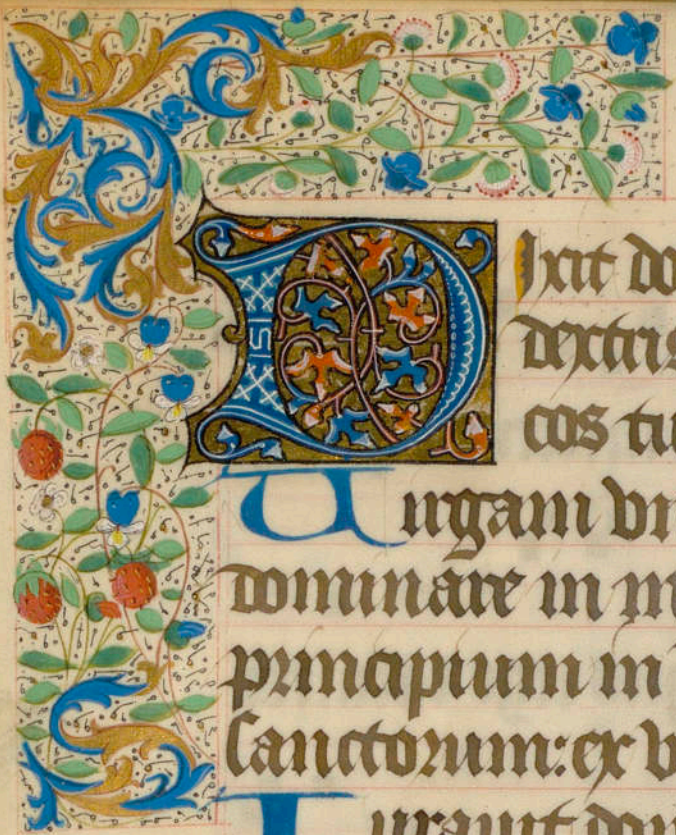 Dixit do
dextris
cos tu
Uirgam vir
dominare in m
principium in
sanctorum: ex v
Iurauit dom